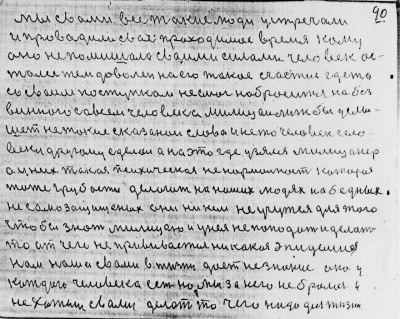 90.
мы свами все такие люди устречали
и провадили свае праходимое время кому
оно не помишала сваими силами человек ос-
талсе тем доволен на его такое счастие едета
со своем поступкам не смог наброситса на без
винного совсем человека милицанык бы услы-
шет не такие сказаной слова и кето человек чело-
веку другому сделал а на это где узялся милицанер
а у них такая психическая ненормалност катарая
тоже грубасти делаит на наших людях на бедных.
не самозащищеных они ни кем не учутся для того
что бы знат милицию и у нея не попадат и делат
то ат чего не прививаетса никакая эпидемия
нам наша свами в жизни дает незнание оно у
каждого человека ест но мы за него не брались и
не хатим свами делат то чего надо для жизни